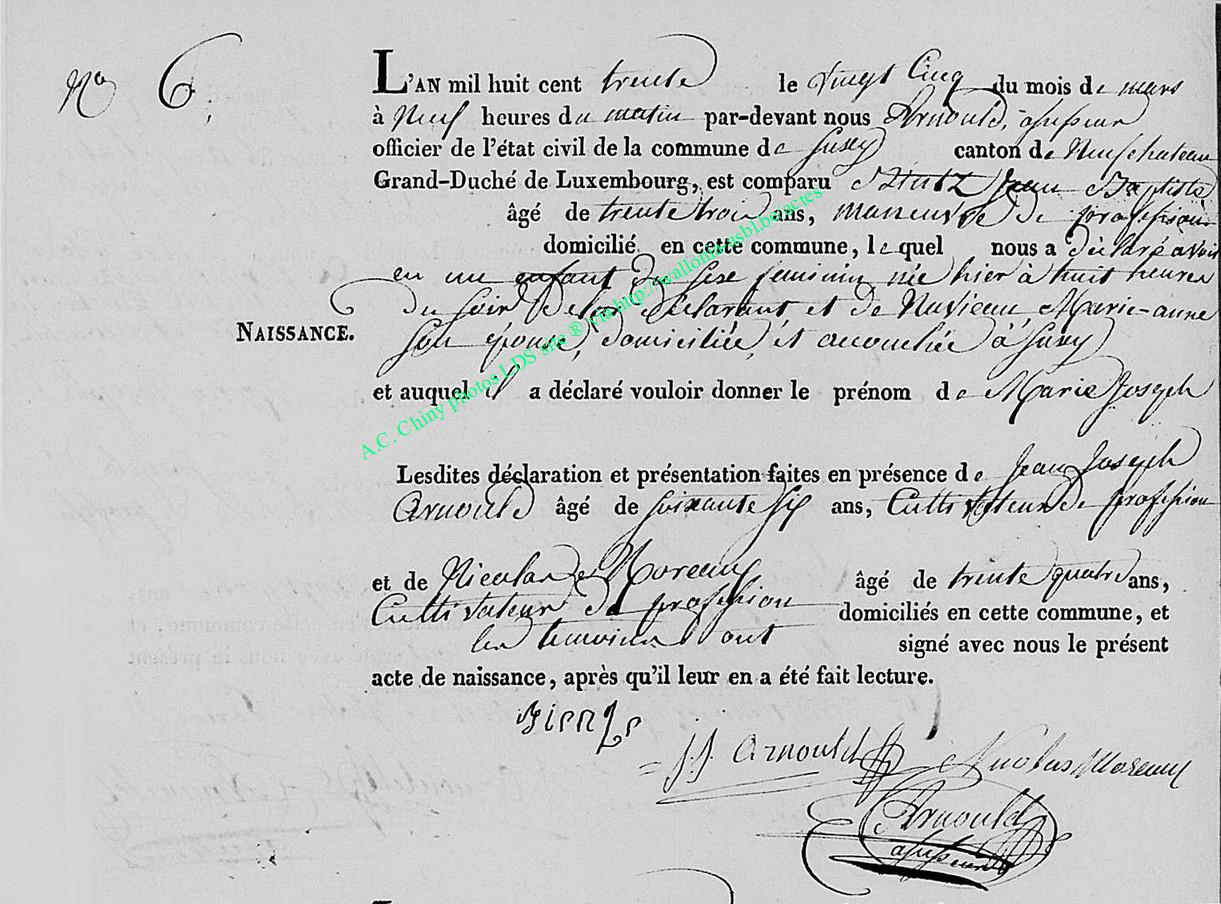 No 6
L'AN mil huit cent trente le vingt Cinq du mois de mars
à Neuf heures du matin par-devant nous Arnould, assesseur
officier de l'état civil de la commune de Suxy canton de Neufchateau
Grand-Duché de Luxembourg, est comparu Jean Baptiste
âgé de trente trois ans, de profession
domicilié en cette commune, lequel nous a déclaré avoir
eu un enfant du sexe feminin née hier à huit heures
du soir De lui Déclarant et de Marie-anne
NAISSANCE.
Son épouse, domiciliée, et accouchée à Suxy
et auquel il a déclaré vouloir donner le prénom de Marie Joseph
Lesdites déclaration et présentation faites en présence de Jean Joseph
Arnould âgé de soixante six ans, Cultivateur de profession
et de Nicolas Moreau âgé de trente quatre ans,
Cultivateur de profession domiciliés en cette commune, et
les temoins ont signé avec nous le présent
acte de naissance, après qu'il leur en a été fait lecture.
J.J. Arnould Nicolas Moreau
Arnould
assesseur
A.C. Chiny photos LDS site ® via http://wallonica.asbl.be/actes